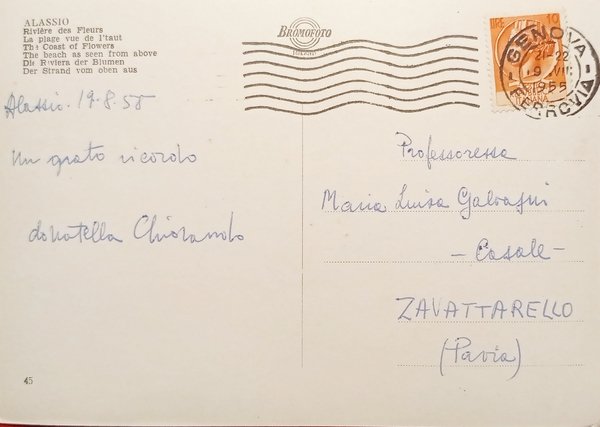 ALASSIO
Rivière des Fleurs
La plage vue de l'taut
The Coast of Flowers
The beach as seen from above
Die Riviera der Blumen
Der Strand vom oben aus
BROMOFOTO
MILANO
LIRE 10
GENOVA
21-22
1955
FERROVIA
Alassio. 19.8.55
Un grato ricordo
donatella Chiorando
Professoressa
Maria Luisa Galvagni
- Casale -
ZAVATTARELLO
(Pavia)
45